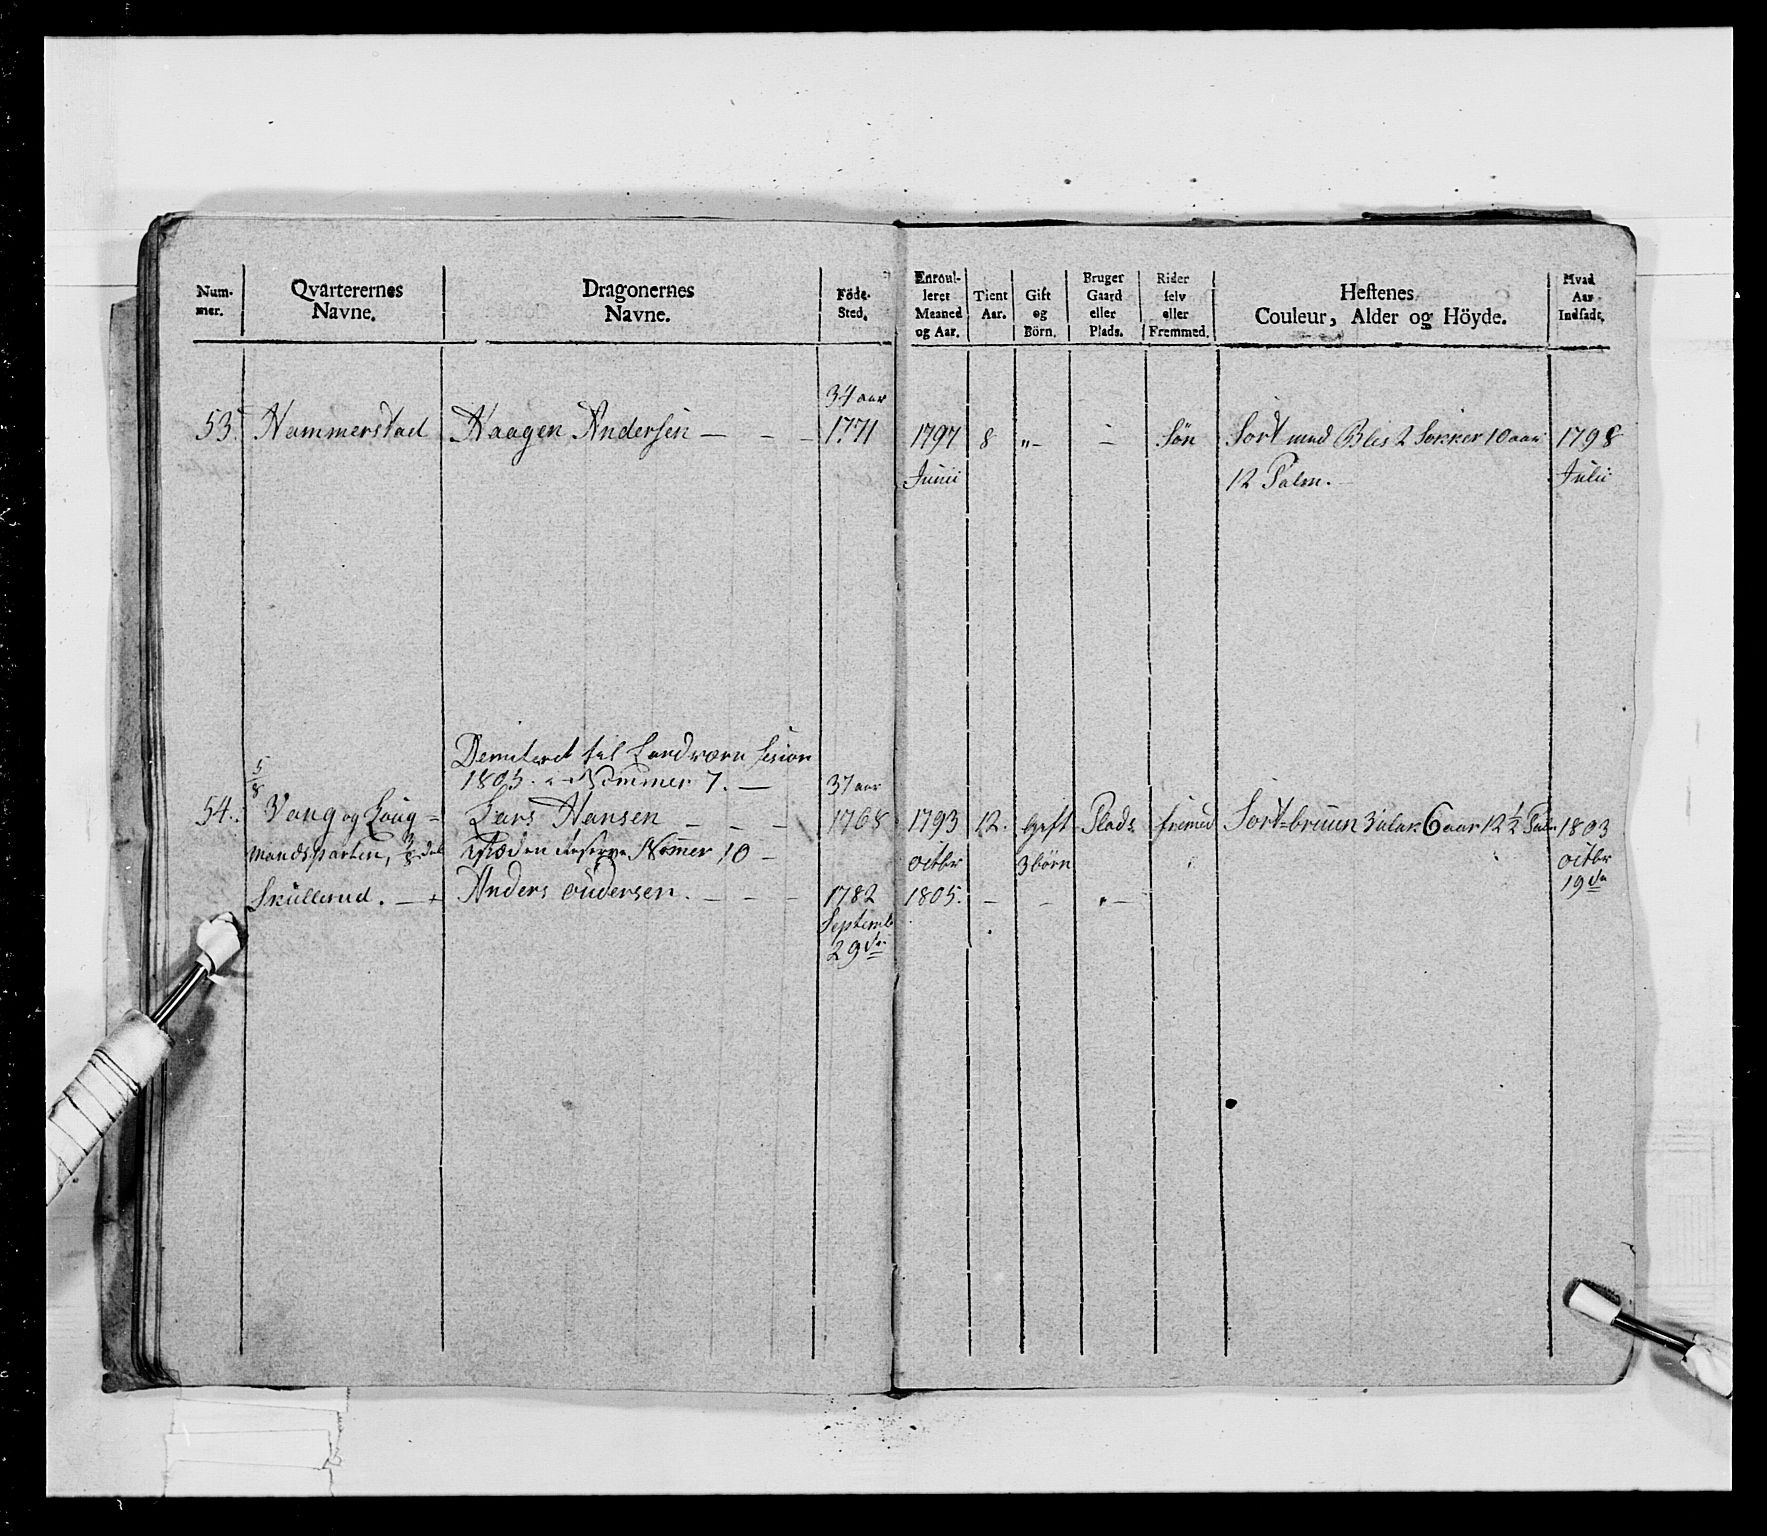 Num-
mer.
Qvarterernes
Navne.
Dragonernes
Navne.
Föde-
Sted.
Enroul-
leret
Maaned
og Aar.
Tient
Aar.
Gift
og
Börn.
Bruger
Gaard
eller
Plads.
Rider
selv
eller
Fremmed.
Hestenes
Couleur, Alder og Höyde.
Hvad
Aar
Indsadt.
34 aar
53. Hammerstad Haagen Andersen — — — 1771 1797 8 „— — Sön Sort med Blis 2 Sokker 10 aar 1798
Junii 12 Palm. Julii
Demiteret til Landværn
1805. Nommer 7. —
5/8 37 aar
54. Vang og Laug- Lars Hansen — — — 1768 1793 12. Gift Plads fremed Sort-bruun 6 aar 12 ½ Palm 1803
mandsparten, 3/8 del Reserve Nomer 10 — octbr 3 börn octbr
19de
Skullerud. — Anders — — — 1782 1805. — — —
Septemb
29de